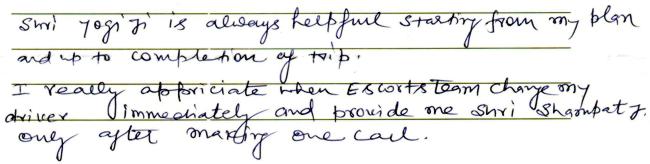 Shri Yogi Ji is always helpfull starting from my plan
and up to completion of trip.
I really appriciate when Escorts Team change my
driver immediately and provide me Shri Shampat J.
only after making one call.